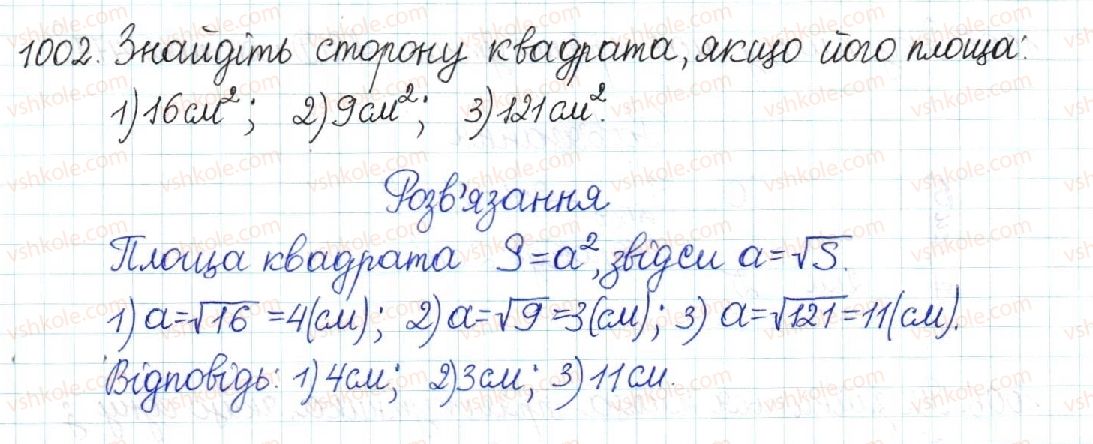 1002. Знайдіть сторону квадрата, якщо його площа:
1) 16 см²; 2) 9 см²; 3) 121 см².
Розв'язання
Площа квадрата S = a², звідси a = √S.
1) a = √16 = 4 (см); 2) a = √9 = 3 (см); 3) a = √121 = 11 (см).
Відповідь: 1) 4 см; 2) 3 см; 3) 11 см.
vshkole.com